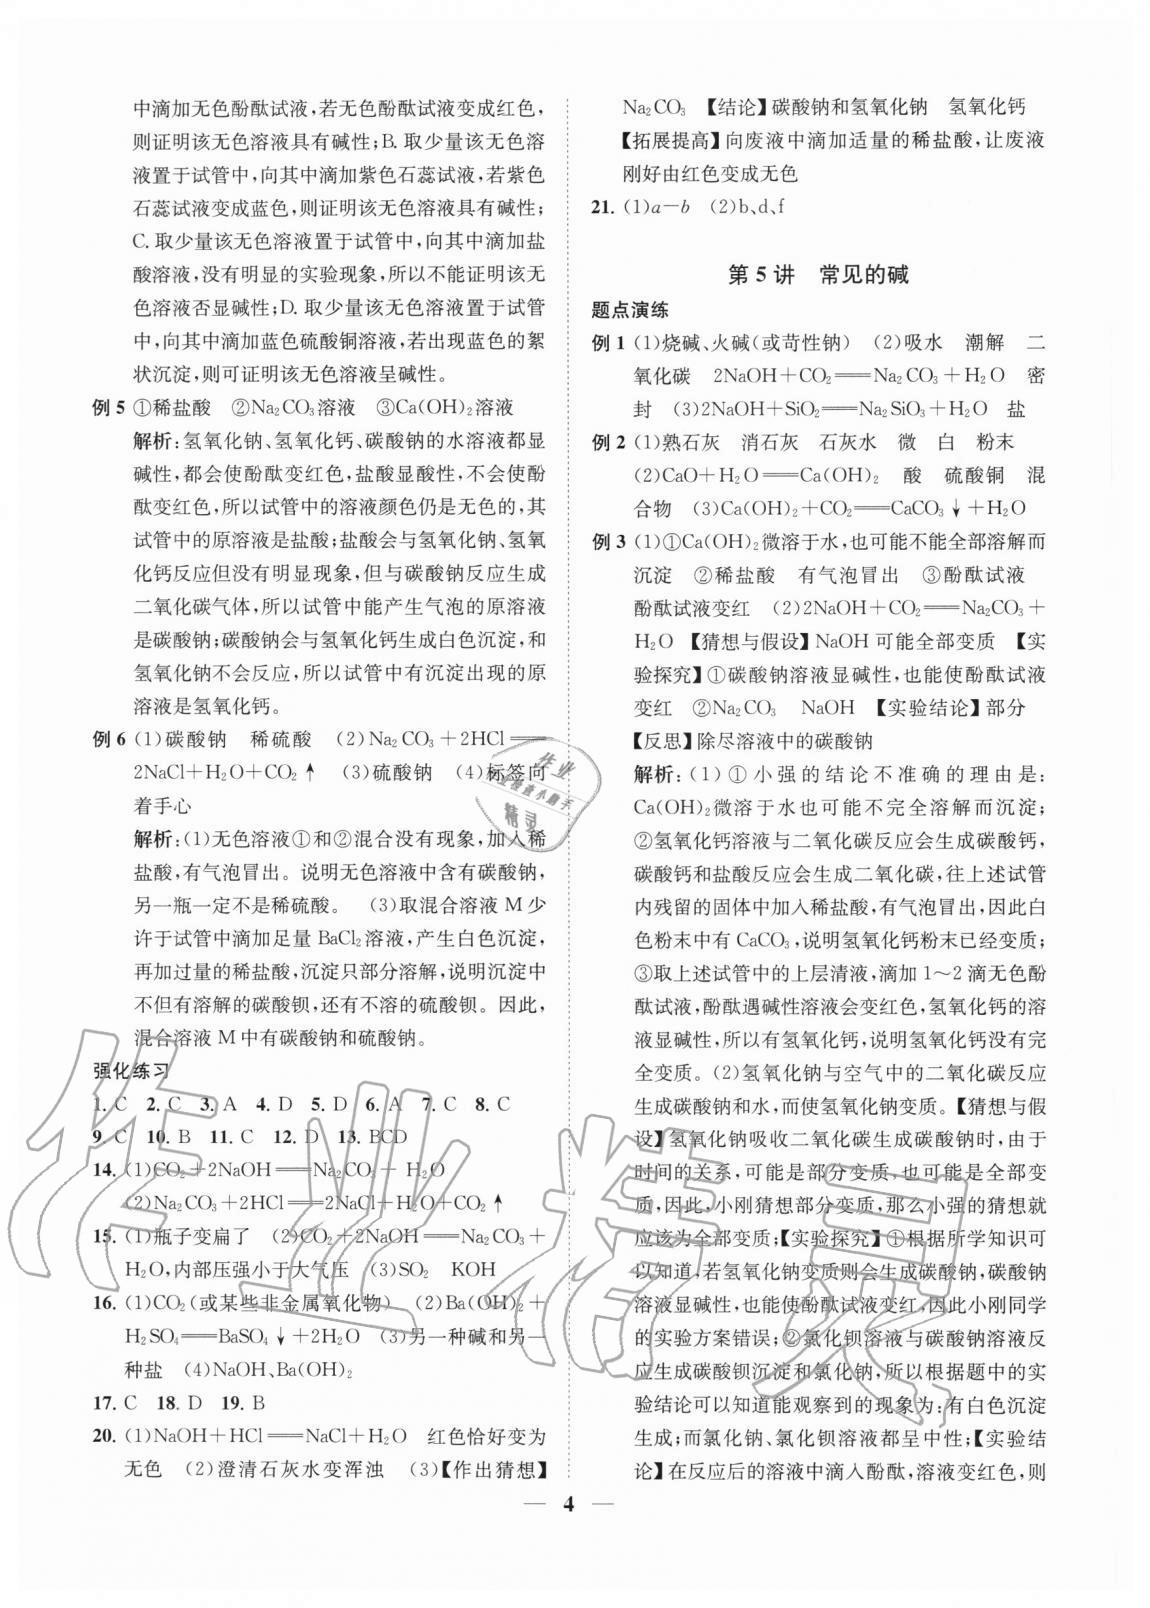 中滴加无色酚酞试液,若无色酚酞试液变成红色,
则证明该无色溶液具有碱性;B. 取少量该无色溶
液置于试管中,向其中滴加紫色石蕊试液,若紫色
石蕊试液变成蓝色,则证明该无色溶液具有碱性;
C. 取少量该无色溶液置于试管中,向其中滴加盐
酸溶液,没有明显的实验现象,所以不能证明该无
色溶液否显碱性;D. 取少量该无色溶液置于试管
中,向其中滴加蓝色硫酸铜溶液,若出现蓝色的絮
状沉淀,则可证明该无色溶液呈碱性。
例 5 ①稀盐酸 ②Na₂CO₃溶液 ③Ca(OH)₂溶液
解析:氢氧化钠、氢氧化钙、碳酸钠的水溶液都显
碱性,都会使酚酞变红色,盐酸显酸性,不会使酚
酞变红色,所以试管中的溶液颜色仍是无色的,其
试管中的原溶液是盐酸;盐酸会与氢氧化钠、氢氧
化钙反应但没有明显现象,但与碳酸钠反应生成
二氧化碳气体,所以试管中能产生气泡的原溶液
是碳酸钠;碳酸钠会与氢氧化钙生成白色沉淀,和
氢氧化钠不会反应,所以试管中有沉淀出现的原
溶液是氢氧化钙。
例 6 (1)碳酸钠 稀硫酸 (2)Na₂CO₃+2HCl══
2NaCl+H₂O+CO₂↑ (3)硫酸钠 (4)标签向
着手心
解析:(1)无色溶液①和②混合没有现象,加入稀
盐酸,有气泡冒出。说明无色溶液中含有碳酸钠,
另一瓶一定不是稀硫酸。 (3)取混合溶液 M 少
许于试管中滴加足量 BaCl₂溶液,产生白色沉淀,
再加过量的稀盐酸,沉淀只部分溶解,说明沉淀中
不但有溶解的碳酸钡,还有不溶的硫酸钡。因此,
混合溶液 M 中有碳酸钠和硫酸钠。
强化练习
1. C 2. C 3. A 4. D 5. D 6. A 7. C 8. C
9. C 10. B 11. C 12. D 13. BCD
14. (1)CO₂+2NaOH══Na₂CO₃+H₂O
(2)Na₂CO₃+2HCl══2NaCl+H₂O+CO₂↑
15. (1)瓶子变扁了 (2)CO₂+2NaOH══Na₂CO₃+
H₂O,内部压强小于大气压 (3)SO₂ KOH
16. (1)CO₂(或某些非金属氧化物) (2)Ba(OH)₂+
H₂SO₄══BaSO₄↓+2H₂O (3)另一种碱和另一
种盐 (4)NaOH、Ba(OH)₂
17. C 18. D 19. B
20. (1)NaOH+HCl══NaCl+H₂O 红色恰好变为
无色 (2)澄清石灰水变浑浊 (3)【作出猜想】
Na₂CO₃ 【结论】碳酸钠和氢氧化钠 氢氧化钙
【拓展提高】向废液中滴加适量的稀盐酸,让废液
刚好由红色变成无色
21. (1)a－b (2)b、d、f
第 5 讲 常见的碱
题点演练
例 1 (1)烧碱、火碱(或苛性钠) (2)吸水 潮解 二
氧化碳 2NaOH+CO₂══Na₂CO₃+H₂O 密
封 (3)2NaOH+SiO₂══Na₂SiO₃+H₂O 盐
例 2 (1)熟石灰 消石灰 石灰水 微 白 粉末
(2)CaO+H₂O══Ca(OH)₂ 酸 硫酸铜 混
合物 (3)Ca(OH)₂+CO₂══CaCO₃↓+H₂O
例 3 (1)①Ca(OH)₂微溶于水,也可能不能全部溶解而
沉淀 ②稀盐酸 有气泡冒出 ③酚酞试液
酚酞试液变红 (2)2NaOH+CO₂══Na₂CO₃+
H₂O 【猜想与假设】NaOH 可能全部变质 【实
验探究】①碳酸钠溶液显碱性,也能使酚酞试液
变红 ②Na₂CO₃ NaOH 【实验结论】部分
【反思】除尽溶液中的碳酸钠
解析:(1)①小强的结论不准确的理由是:
Ca(OH)₂微溶于水也可能不完全溶解而沉淀;
②氢氧化钙溶液与二氧化碳反应会生成碳酸钙,
碳酸钙和盐酸反应会生成二氧化碳,往上述试管
内残留的固体中加入稀盐酸,有气泡冒出,因此白
色粉末中有 CaCO₃,说明氢氧化钙粉末已经变质;
③取上述试管中的上层清液,滴加 1～2 滴无色酚
酞试液,酚酞遇碱性溶液会变红色,氢氧化钙的溶
液显碱性,所以有氢氧化钙,说明氢氧化钙没有完
全变质。(2)氢氧化钠与空气中的二氧化碳反应
生成碳酸钠和水,而使氢氧化钠变质。【猜想与假
设】氢氧化钠吸收二氧化碳生成碳酸钠时,由于
时间的关系,可能是部分变质,也可能是全部变
质,因此,小刚猜想部分变质,那么小强的猜想就
应该为全部变质;【实验探究】①根据所学知识可
以知道,若氢氧化钠变质则会生成碳酸钠,碳酸钠
溶液显碱性,也能使酚酞试液变红,因此小刚同学
的实验方案错误;②氯化钡溶液与碳酸钠溶液反
应生成碳酸钡沉淀和氯化钠,所以根据题中的实
验结论可以知道能观察到的现象为:有白色沉淀
生成;而氯化钠、氯化钡溶液都呈中性;【实验结
论】在反应后的溶液中滴入酚酞,溶液变红色,则
— 4 —
作业精灵
作业
作业检查小助手
精灵